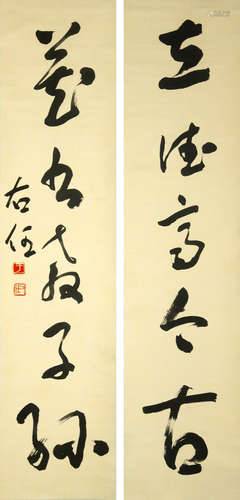 立德齊今古
藏書教子孫
右任